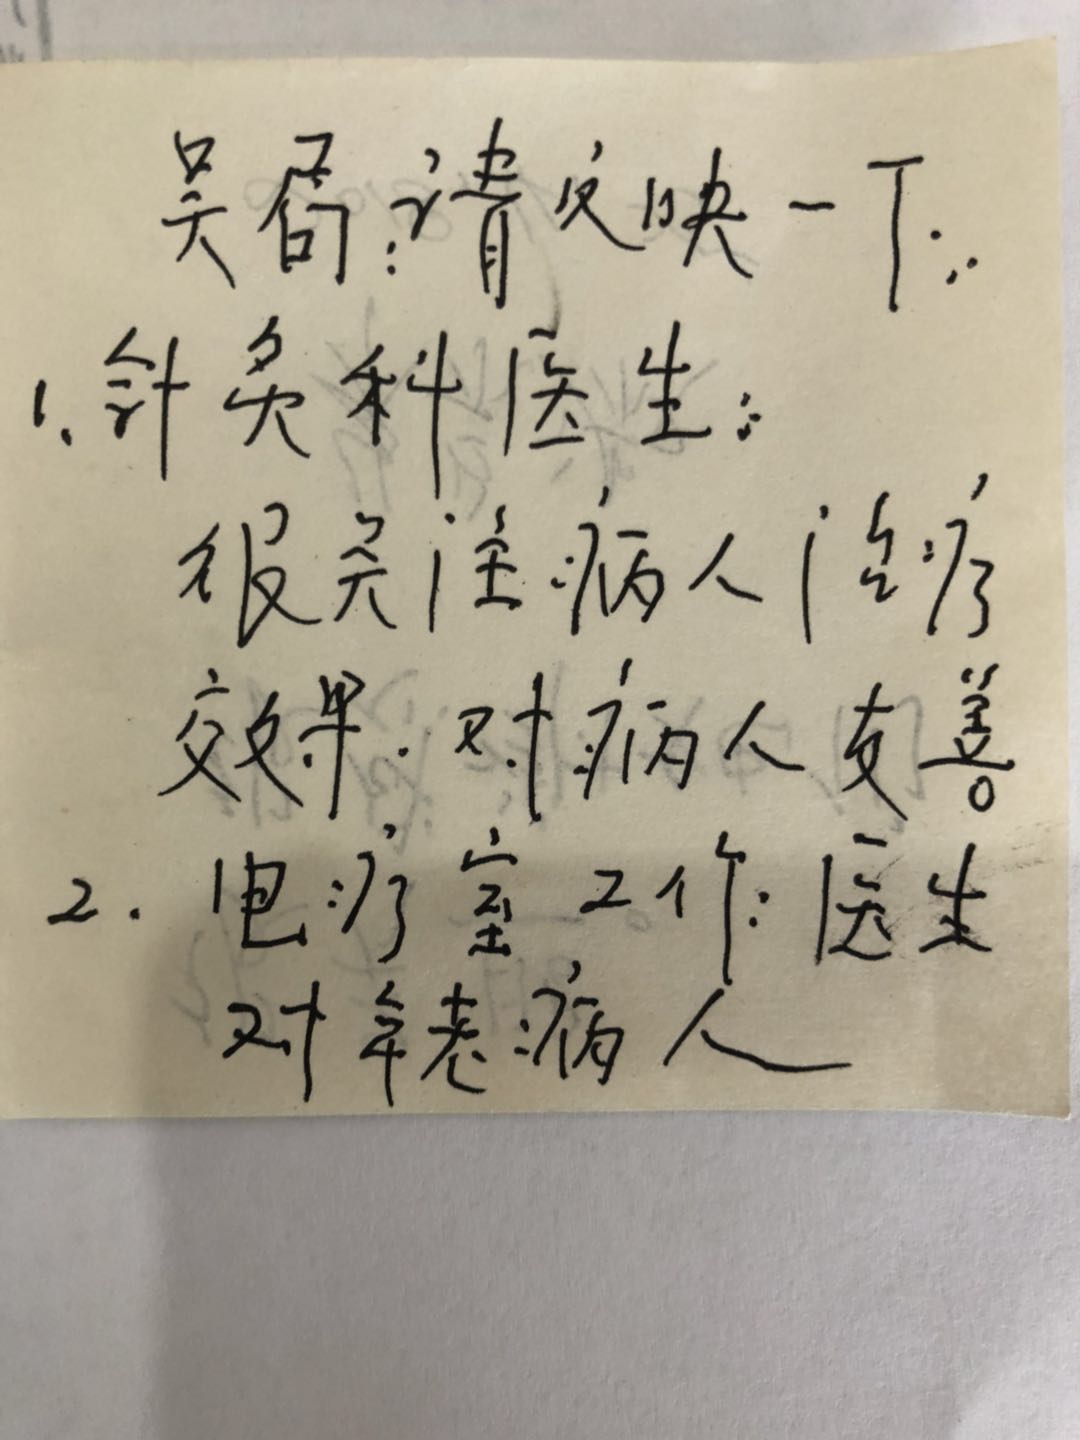 吴局:请反映一下:
1.针灸科医生:
很关注病人治疗
效果.对病人友善
2.电疗室工作医生
对年老病人